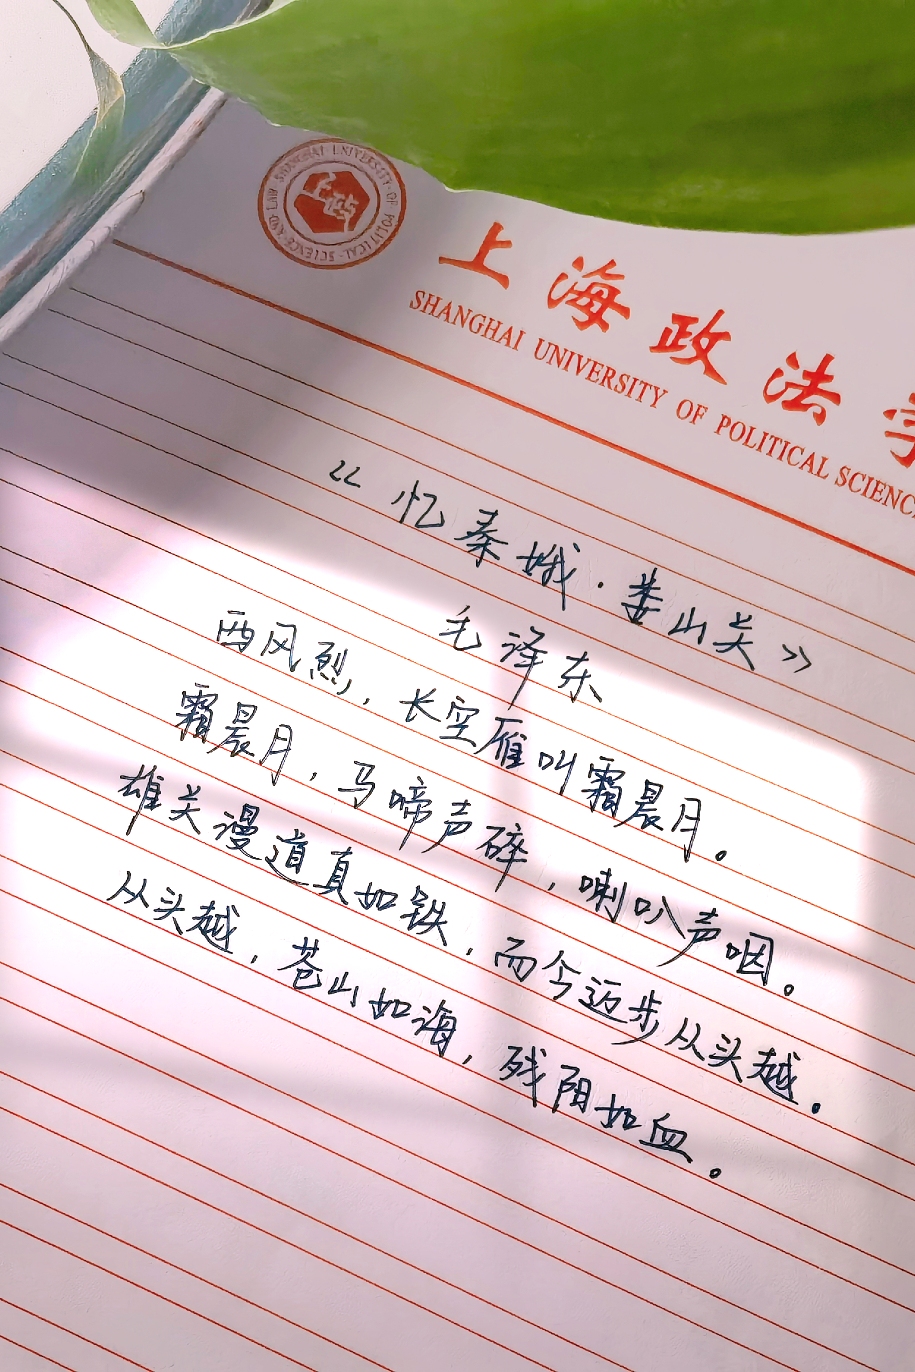 SHANGHAI UNIVERSITY OF POLITICAL SCIENCE AND LAW
上政
上海政法
SHANGHAI UNIVERSITY OF POLITICAL SCIENC
《忆秦娥·娄山关》
毛泽东
西风烈，长空雁叫霜晨月。
霜晨月，马啼声碎，喇叭声咽。
雄关漫道真如铁，而今迈步从头越。
从头越，苍山如海，残阳如血。